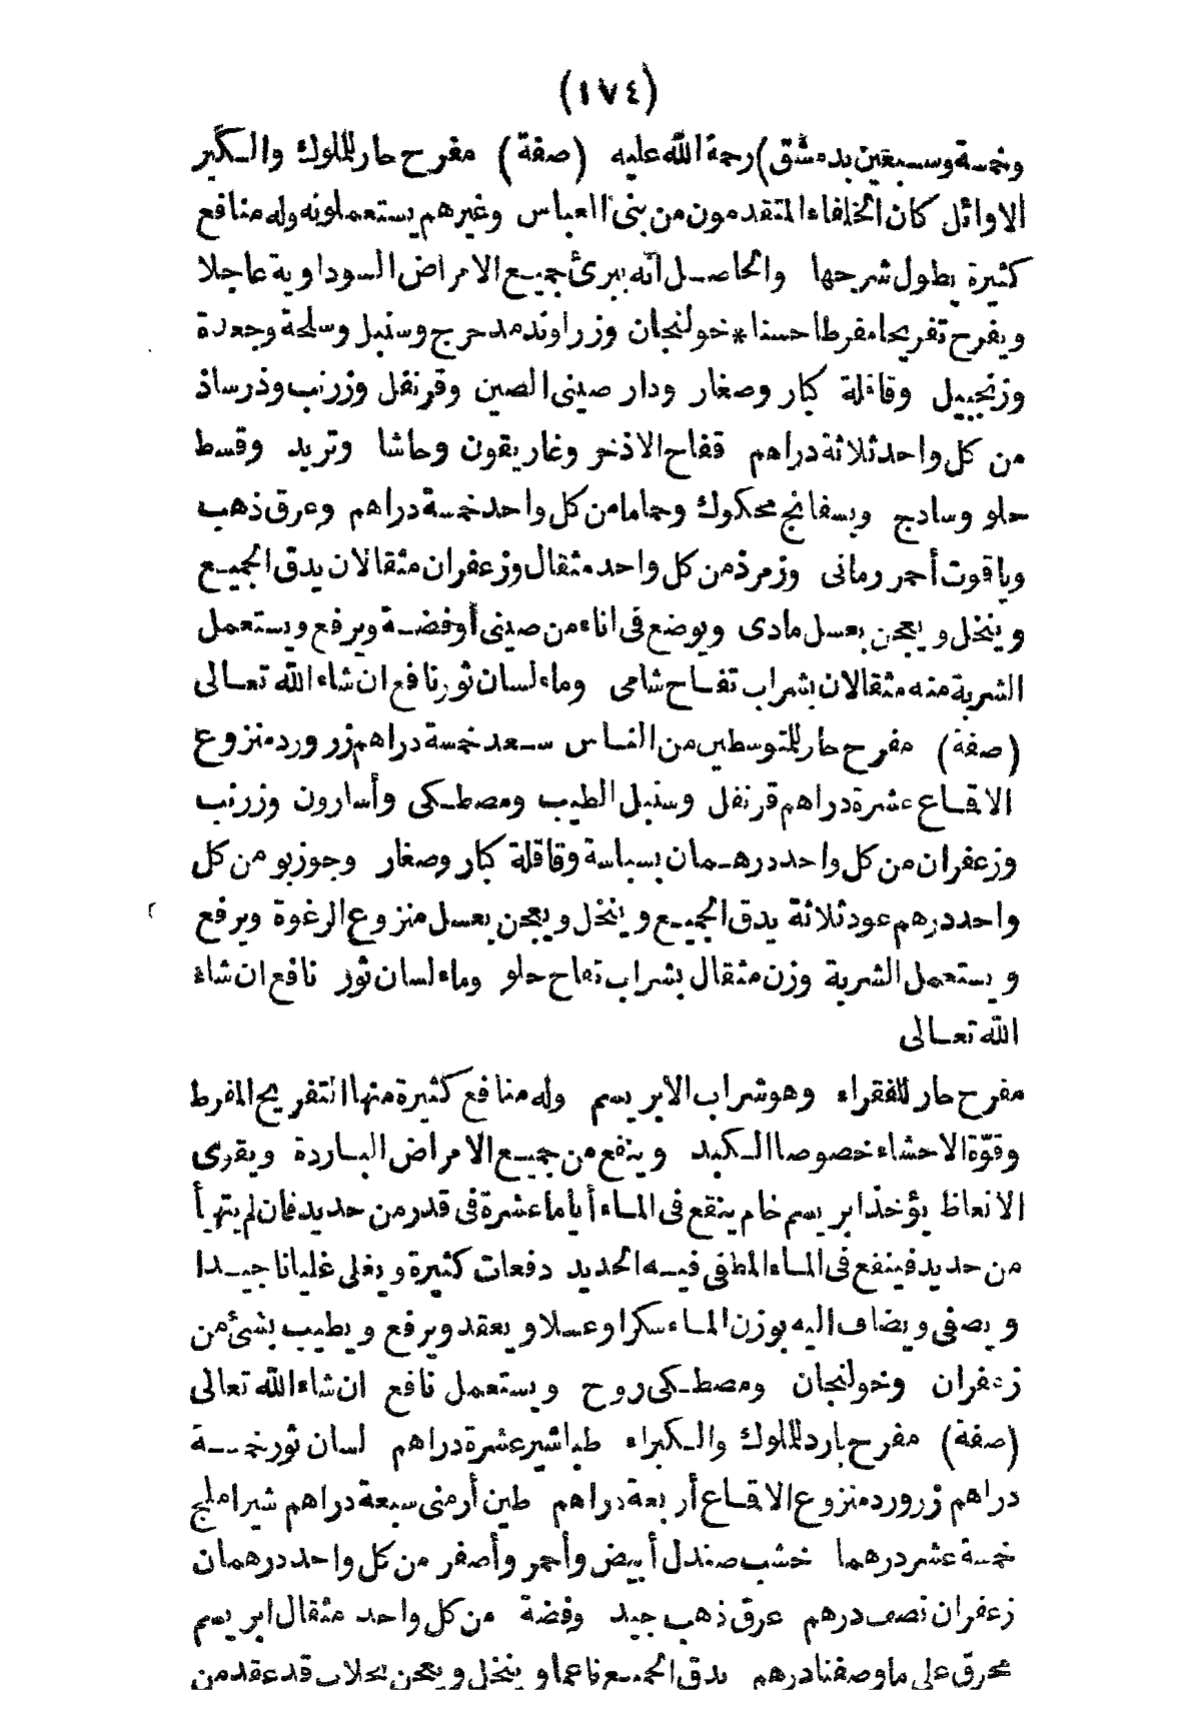 (١٧٤)
وخمسة وسبعين بدمشق) رحمة الله عليه (صفة) مفرح حار للملوك والكبر
الاوائل كان الخلفاء المتقدمون من بنى العباس وغيرهم يستعملونه وله منافع
كثيرة يطول شرحها والحاصل أنه يبرئ جميع الامراض السوداوية عاجلا
ويفرح تفريحا مفرطا حسنا * خولنجان وزراوند مدحرج وسنبل وسلحة وجعدة
وزنجبيل وقاقلة كبار وصغار ودار صينى الصين وقرنفل وزرنب وذرساذ
من كل واحد ثلاثة دراهم قفاح الاذخر وغاريقون وحاشا وتربد وقسط
حلو وسادج وبسفانج محكوك وحماما من كل واحد خمسة دراهم وعرق ذهب
وياقوت أحمر رمانى وزمرذ من كل واحد مثقال وزعفران مثقالان يدق الجميع
وينخل ويعجن بعسل مادى ويوضع فى اناء من صينى أو فضة ويرفع ويستعمل
الشربة منه مثقالان بشراب تفاح شامى وماء لسان ثور نافع ان شاء الله تعالى
(صفة) مفرح حار للمتوسطين من الناس سعد خمسة دراهم زر ورد منزوع
الاقماع عشرة دراهم قرنفل وسنبل الطيب ومصطكى وأسارون وزرنب
وزعفران من كل واحد درهمان بسباسة وقاقلة كبار وصغار وجوزبو من كل
واحد درهم عود ثلاثة يدق الجميع وينخل ويعجن بعسل منزوع الرغوة ويرفع
ويستعمل الشربة وزن مثقال بشراب تفاح حلو وماء لسان ثور نافع ان شاء
الله تعالى
مفرح حار للفقراء وهو شراب الابريسم وله منافع كثيرة منها التفريح المفرط
وقوّة الاحشاء خصوصا الكبد وينفع من جميع الامراض الباردة ويقوى
الانعاظ يؤخذ ابريسم خام ينقع فى الماء أياما عشرة فى قدر من حديد فان لم يتهيأ
من حديد فينفع فى الماء المطفى فيه الحديد دفعات كثيرة ويغلى غليانا جيدا
ويصفى ويضاف اليه بوزن الماء سكرا وعسلا ويعقد ويرفع ويطيب بشئ من
زعفران وخولنجان ومصطكى روح ويستعمل نافع ان شاء الله تعالى
(صفة) مفرح بارد للملوك والكبراء طباشير عشرة دراهم لسان ثور خمسة
دراهم زرورد منزوع الاقماع أربعة دراهم طين أرمنى سبعة دراهم شيرا ملج
خمسة عشر درهما خشب صندل أبيض وأحمر وأصفر من كل واحد درهمان
زعفران نصف درهم عرق ذهب جيد وفضة من كل واحد مثقال ابريسم
محرق على ما وصفنا درهم يدق الجميع ناعما وينخل ويعجن بجلاب قد عقد من